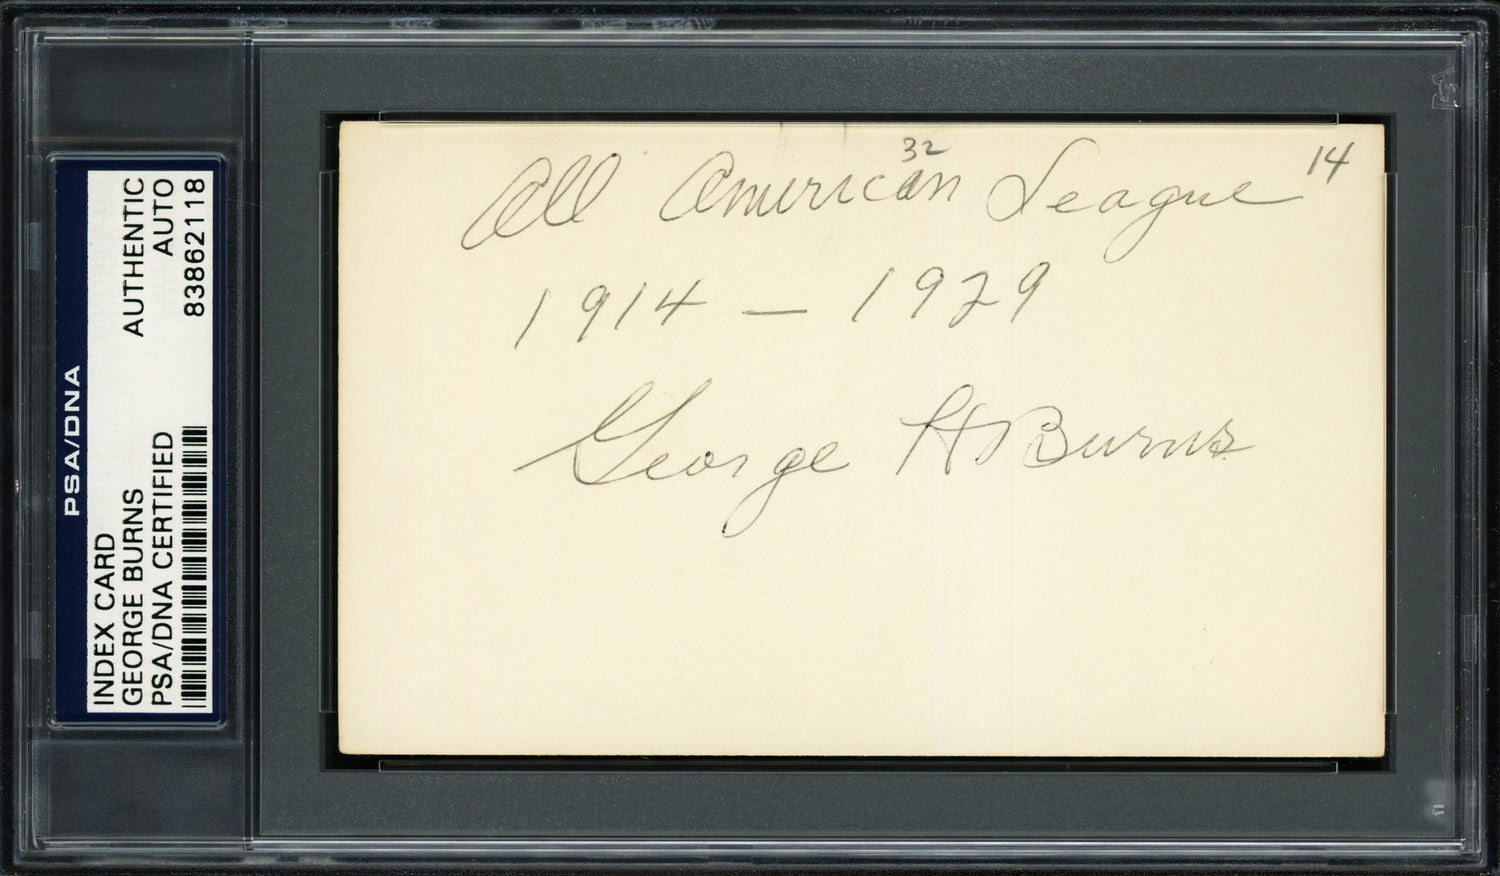 PSA/DNA
INDEX CARD AUTHENTIC
GEORGE BURNS AUTO
PSA/DNA CERTIFIED 83862118
32
14
All American League
1914 — 1929
George H Burns